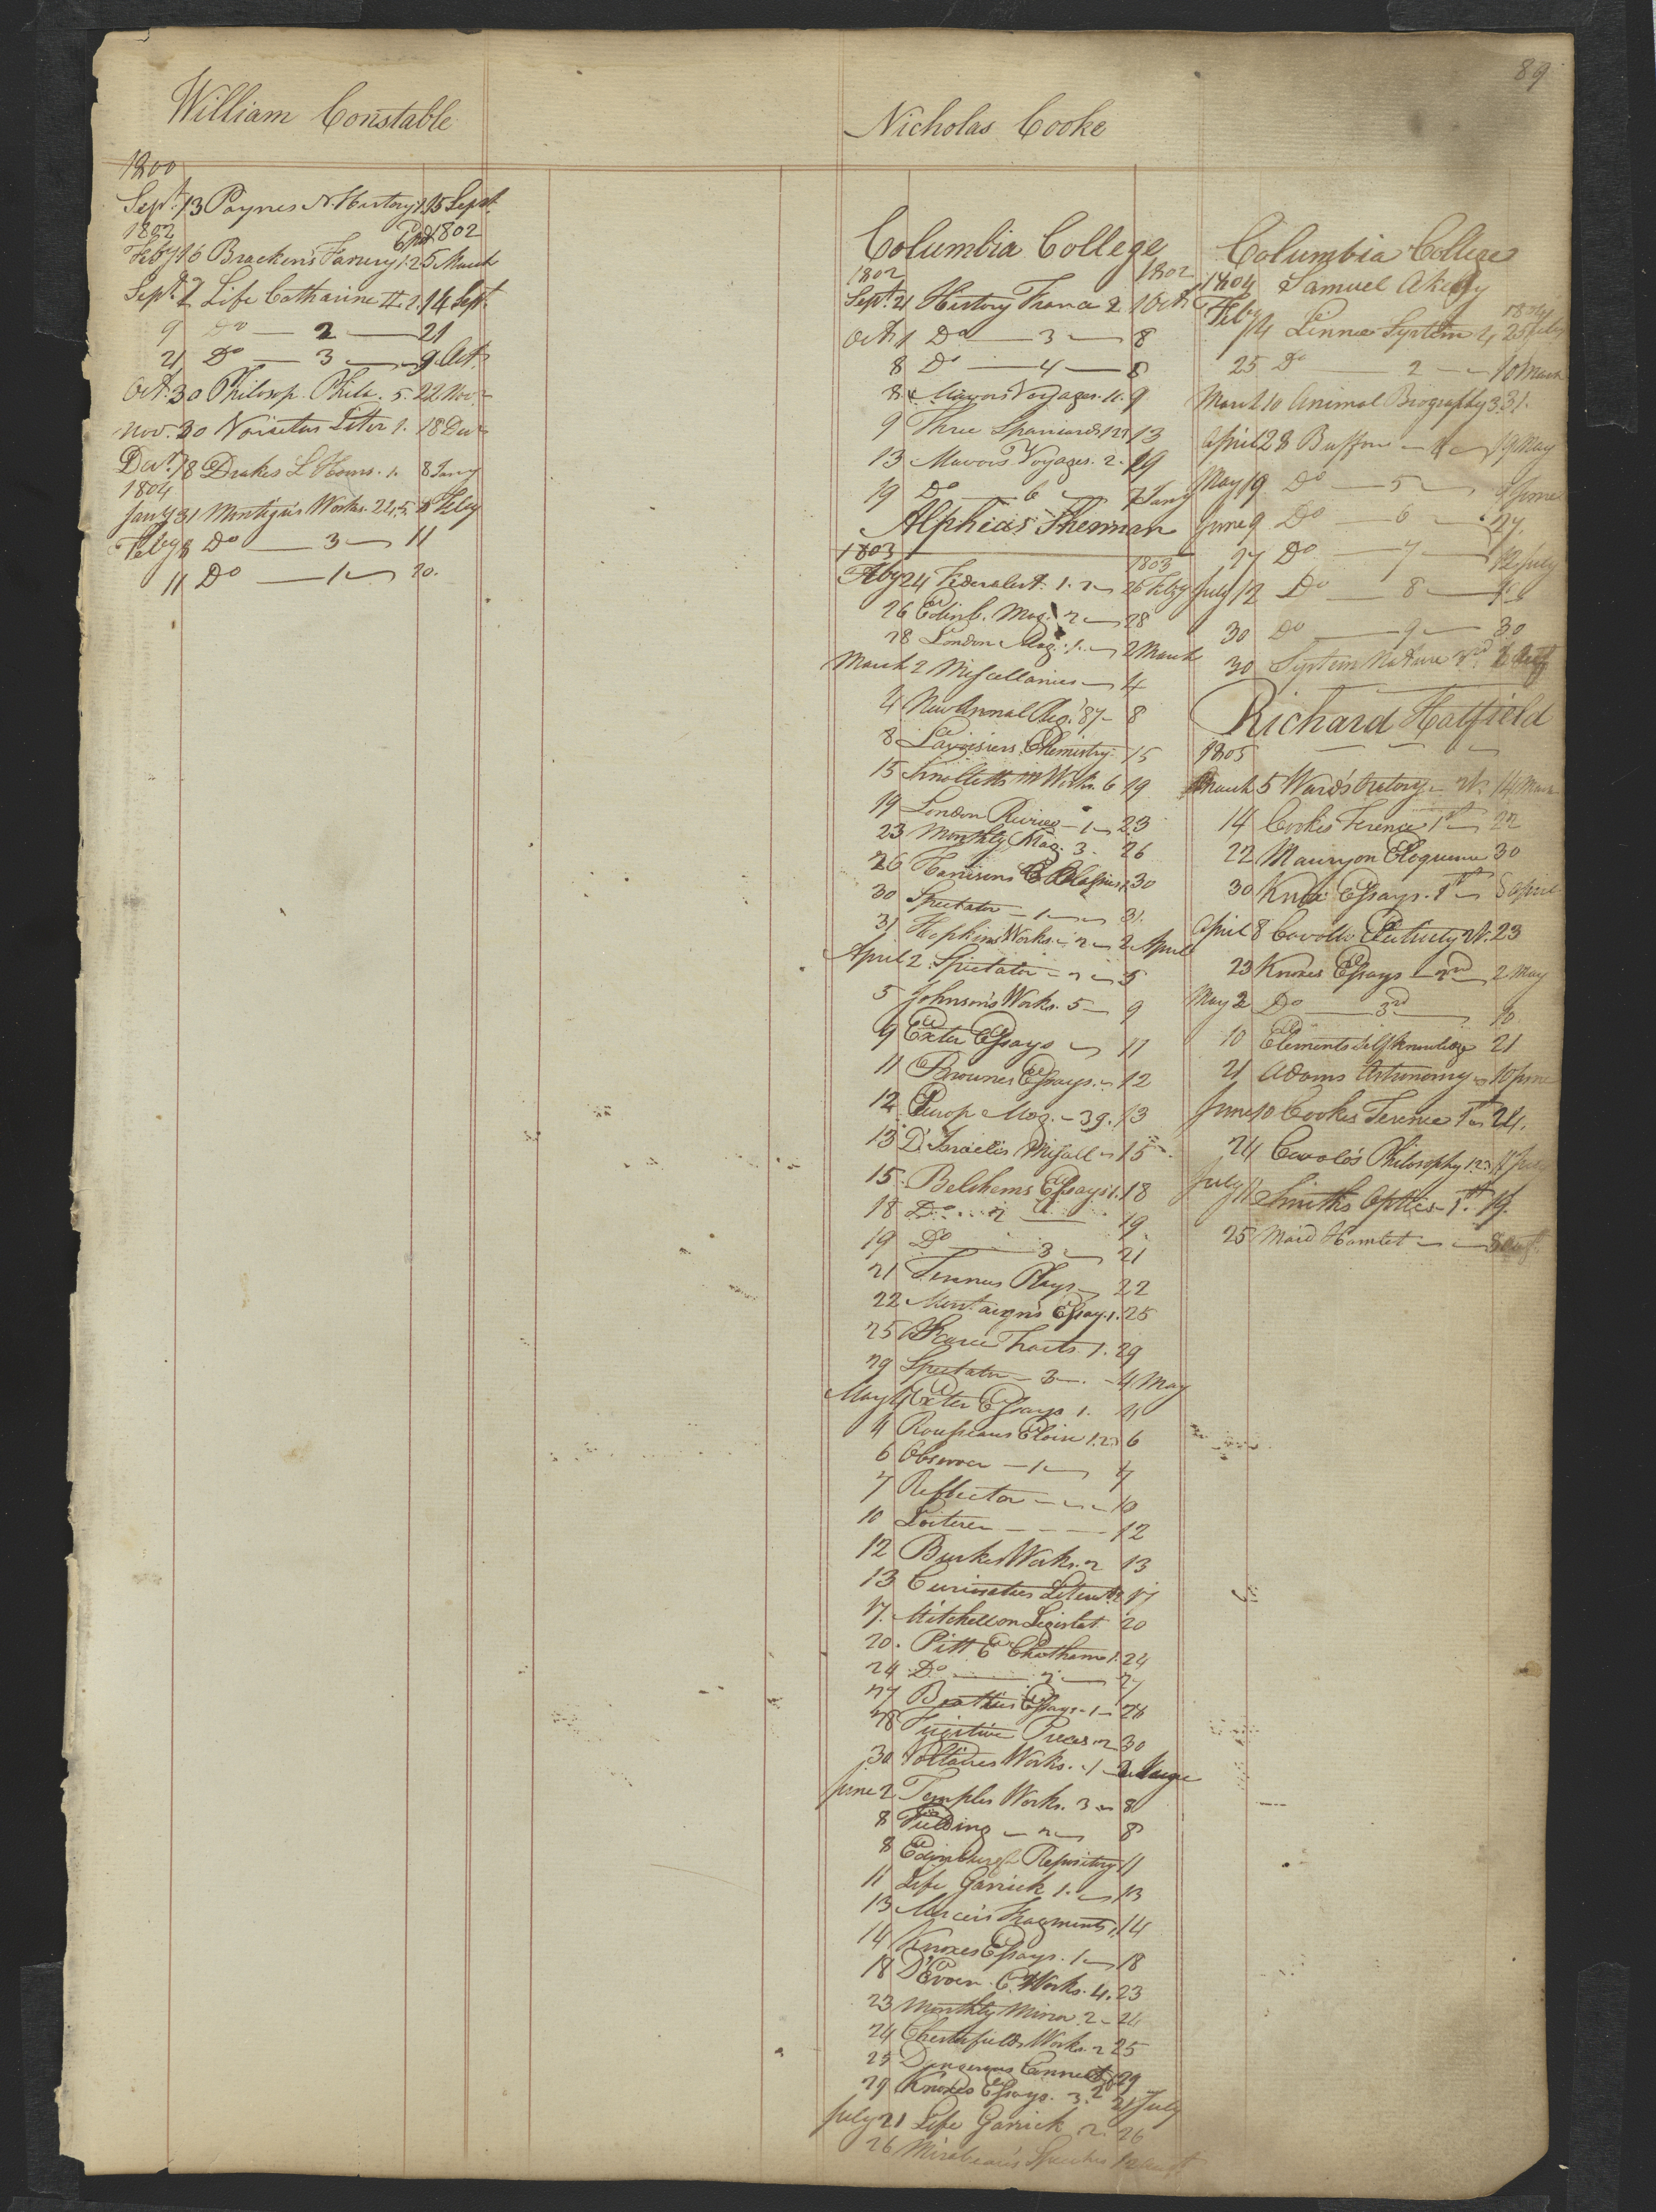 89
William Constable
1800
Sept. 13 Paynes N. History 1. 15 Sept.
1802 1802
Feby 16 Brackens Farriery 1.2. 5 March
Sept. 7 Life Catharine II. 1. 14 Sept.
9 Do — 2 — 21
21 Do — 3 — 9 Oct.
Oct. 30 Philosp. Phila. 5. 22 Nov.
Nov. 30 Liter 1. 18 Decr
Decr 18 Drakes L Hours. 1. 8 Jany
1804
Jany 31 Works. 8 Feby
Feby 8 Do — 3 — 11
11 Do — 1 — 20.
Nicholas Cooke
Columbia College
1802 1802
Sept. 21 History France 2. 1 Octr
Octr 1 Do — 3 — 8
8 Do — 4 — 8
8 Mavors Voyages. 11. 9
9 Three Spaniards 1.2. 13
13 Mavors Voyages. 2. 19
19 Do — 6 — 7 Jany
Alpheus Sherman
1803 1803
Feby 24 Federalist. 1. 2 — 26 Feby
26 Edinb. Mag. 2 — 28
28 London Mag. 1. — 2 March
March 2 Miscellanies — 4
4 New Annal Reg. '87 — 8
8 Lavoisiers Chemistry. 15
15 Smolletts M Works. 6 19
19 London Review — 1 — 23
23 Monthly Mag. 3. 26
26 Harrisons B. Classics 1. 30
30 Spectator — 1 — 31.
31 Hopkins Works. — 2 — 2 April
April 2. Spectator — 2 — 5
5 Johnson's Works. 5 — 9
9 Exeter Essays — 11
11 Brownes Essays. — 12
12 Europ Mag. — 39. 13
13 D'Israelis Miscell — 15
15. Belshams Essays 1. 18
18 Do 2 — 19
19 Do — 3 — 21
21 Plays — 22
22 Montaigns Essay. 1. 25
25 Scarce Tracts. 1. 29
29 Spectator — 3 — 4 May
May 4 Exeter Essays 1. 4
4 Rousseaus Eloise 1.2. 6
6 Observer — 1 — 7
7 Reflector — 10
10 Loiterer — 12
12 Burkes Works. 2 13
13 Curiosities Literat. 2 17
17. Mitchell on Legislat 20
20. Pitt E Chatham 1. 24
24 Do — 2 — 27
27 Beatties Essays — 1 — 28
28 Fugitive Pieces. 2 30
30 Voltaires Works. 1 — 2 June
June 2 Temples Works. 3 — 8
8 Fielding — 2 — 8
8 Edinburgh Repository 11
11 Life Garrick 1. — 13
13 Merciers Fragments 1. 14
14 Knoxes Essays. 1 — 18
18 Works. 4. 23
23 Monthly Mirror 2 — 24
24 Chesterfields Works. 2 25
25 Dangerous Connect. 29
29 Knoxes Essays. 3. 21 July
July 21 Life Garrick 2. 26
26 Mirabeaus Speeches
Columbia College
1804 Samuel Akerly
1804
Feby 14 Linnes System 4 25 Feby
25 Do — 2 — 10 March
March 10 Animal Biography 3. 31.
April 28 Buffon — 4 — 19 May
May 19 Do — 5 — 9 June
June 9 Do — 6 — 27.
27 Do — 7 — 12 July
July 12 Do — 8 —
30 Do — 9 — 30
30 System Nature
Richard Hatfield
1805
March 5 Wards Oratory — 2d. 14 March
14 Cookes Terence 1st — 22
22 Maury on Eloquence 30
30 Knox Essays. 1st — 8 April
April 8 Cavallo Electricity 2d. 23
23 Knoxes Essays — 2nd — 2 May
May 2 Do — 3rd — 10
10 Elements Self Knowledge 21
21 Adams Astronomy — 10 June
June 10 Cookes Terence 1st — 24.
24 Cavalo's Philosophy 1.2. 11 July
July 11 Smiths Optics — 1st. 19.
25 Maid Hamlet — 8 Augt.